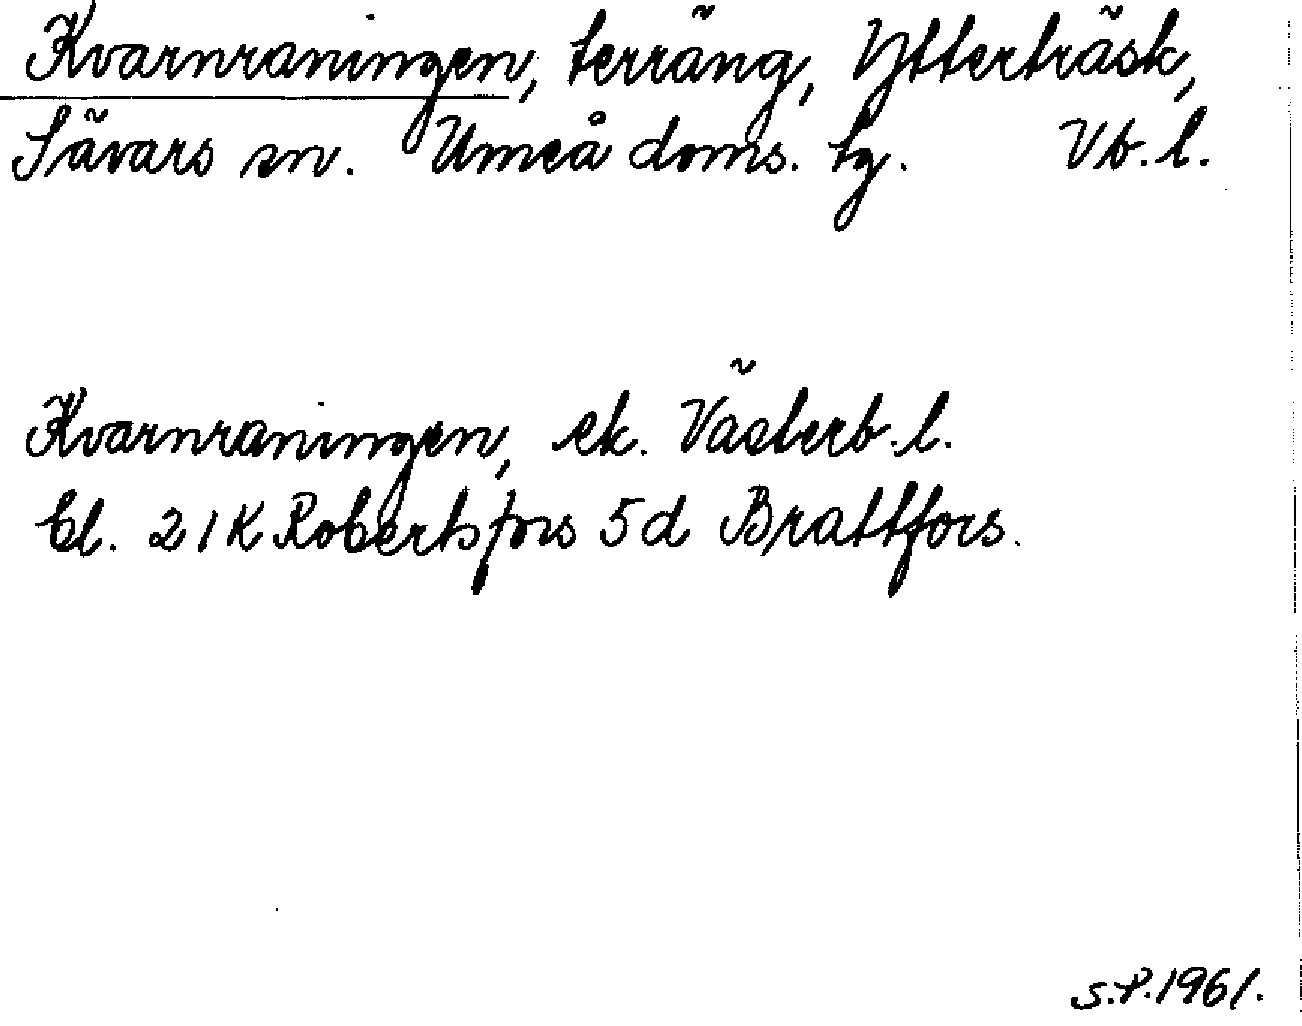 Kvarnraningen, terräng, Ytterträsk,
Sävars sn. Umeå doms. tg. Vb.l.
Kvarnraningen, ek. Västerb.l.
bl. 21K Robertsfors 5d Brattfors.
S.P.1961.